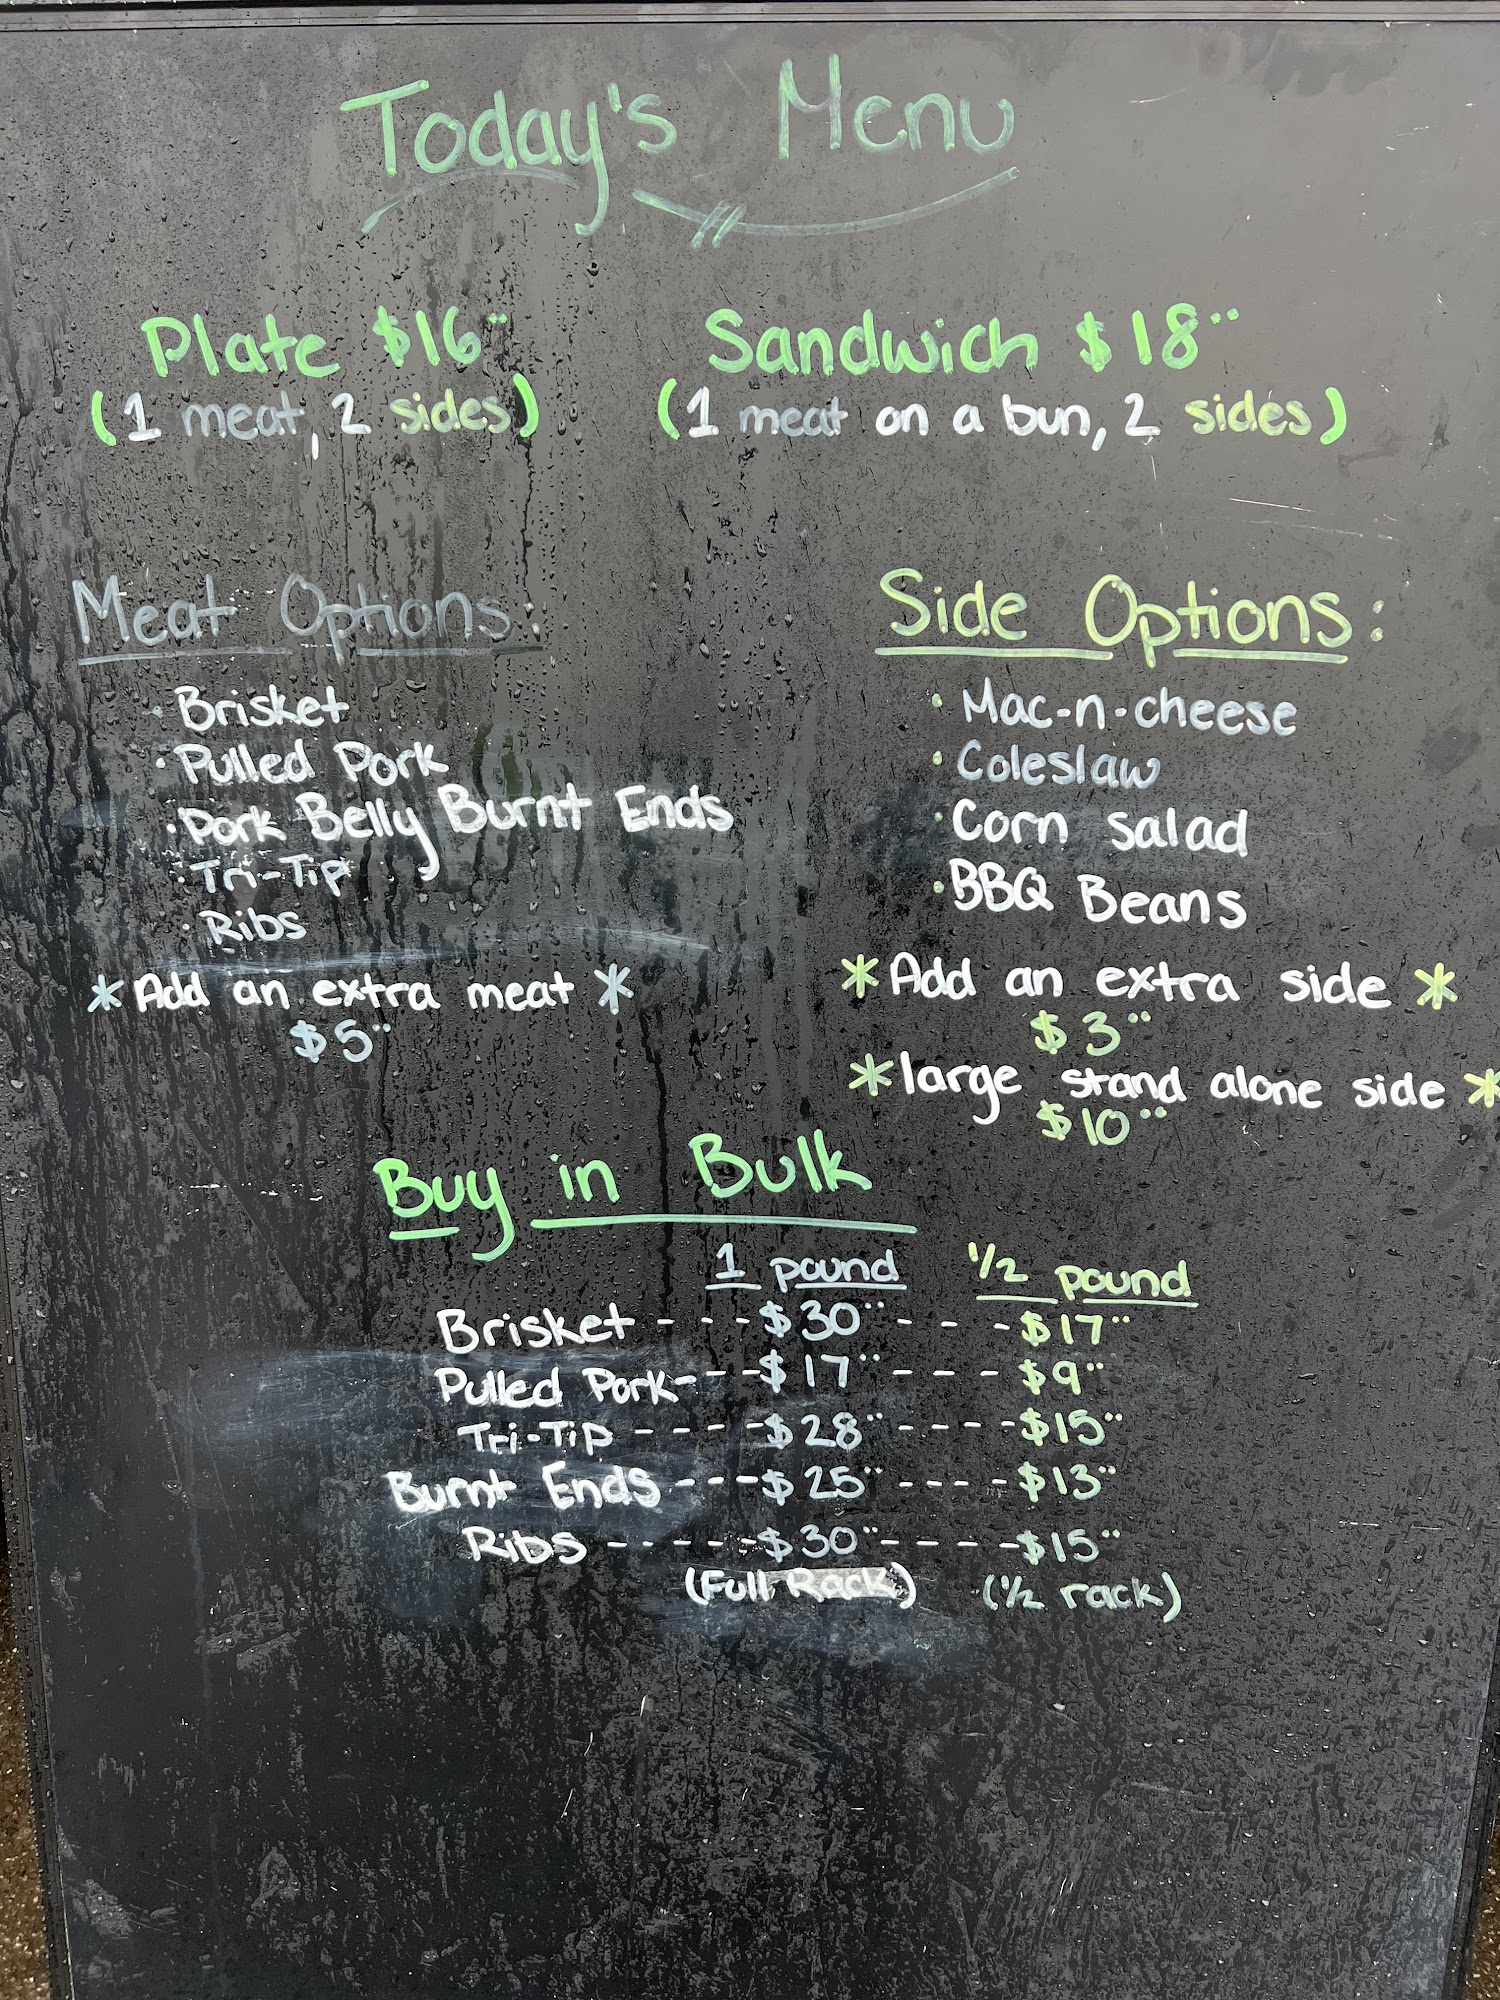 Today's Menu
Plate $16
(1 meat, 2 sides)
Sandwich $18
(1 meat on a bun, 2 sides)
Meat Options:
· Brisket
· Pulled Pork
· Pork Belly Burnt Ends
· Tri-Tip
· Ribs
* Add an extra meat *
$5
Side Options:
· Mac-n-cheese
· Coleslaw
· Corn salad
· BBQ Beans
* Add an extra side *
$3
* large stand alone side *
$10
Buy in Bulk
1 pound 1/2 pound
Brisket - - - $30 - - - - $17
Pulled Pork - - - $17 - - - $9
Tri-Tip - - - - $28 - - - - $15
Burnt Ends - - - $25 - - - - $13
Ribs - - - - - $30 - - - - - $15
(Full Rack) (1/2 rack)